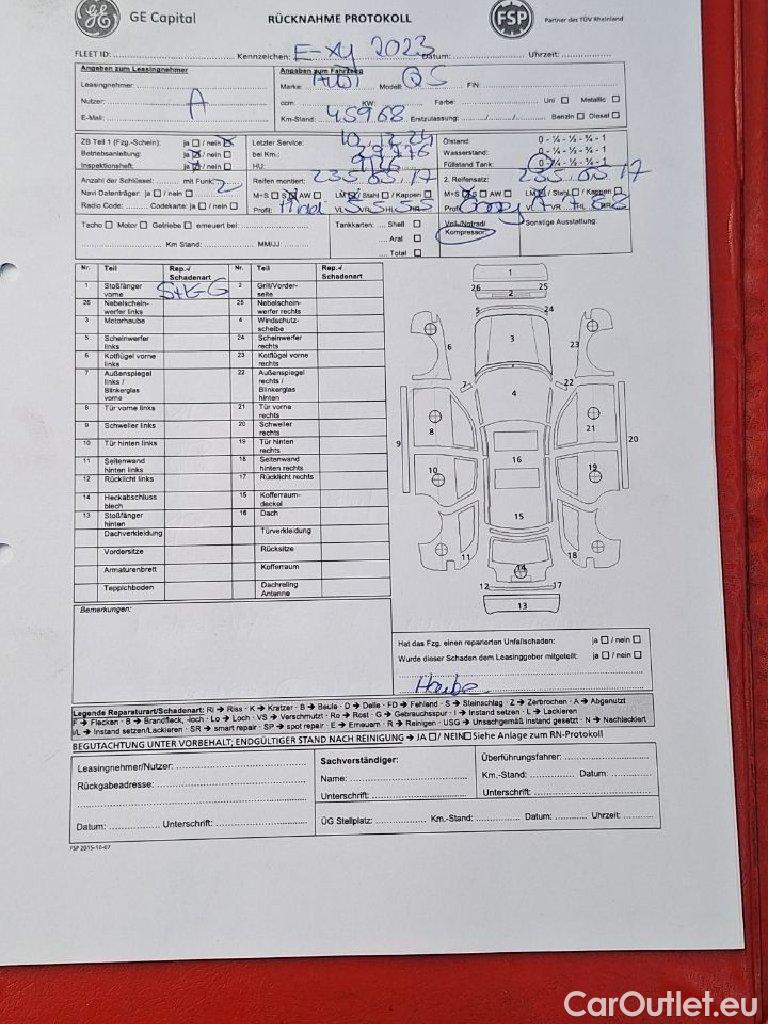 GE Capital RÜCKNAHME PROTOKOLL FSP Partner des TÜV Rheinland
FLEET ID: Kennzeichen: E-XY 2023 Datum: Uhrzeit:
Angaben zum Leasingnehmer Angaben zum Fahrzeug
Leasingnehmer: Marke: AUDI Modell: Q5 FIN:
Nutzer: A ccm: KW: Farbe: Uni Metallic
E-Mail: Km-Stand: 45968 Erstzulassung: Benzin Diesel
ZB Teil 1 (Fzg.-Schein): ja / nein Letzter Service: 10.12.24 Ölstand: 0 - ¼ - ½ - ¾ - 1
Betriebsanleitung: ja / nein bei Km.: Wasserstand: 0 - ¼ - ½ - ¾ - 1
Inspektionsheft: ja / nein HU: Füllstand Tank: 0 - ¼ - ½ - ¾ - 1
Anzahl der Schlüssel: mit Funk: 2 Reifen montiert: 235.65.17 2. Reifensatz: 235.65.17
Navi Datenträger: ja / nein M+S S AW LM / Stahl / Kappen M+S S AW LM / Stahl / Kappen
Radio Code: Codekarte: ja / nein Profil: VL VR HL HR Profil: VL VR HL HR
Tacho Motor Getriebe erneuert bei: Tankkarten: Shell Voll./Notrad/ Sonstige Ausstattung:
Aral Kompressor:
Km Stand: MM/JJ: Total
Nr. Teil Rep.-/ Schadenart Nr. Teil Rep.-/ Schadenart
1 Stoßfänger vorne St+G 2 Grill/Vorderseite
26 Nebelscheinwerfer links 25 Nebelscheinwerfer rechts
3 Motorhaube 4 Windschutzscheibe
5 Scheinwerfer links 24 Scheinwerfer rechts
6 Kotflügel vorne links 23 Kotflügel vorne rechts
7 Außenspiegel links / Blinkerglas vorne 22 Außenspiegel rechts / Blinkerglas hinten
8 Tür vorne links 21 Tür vorne rechts
9 Schweller links 20 Schweller rechts
10 Tür hinten links 19 Tür hinten rechts
11 Seitenwand hinten links 18 Seitenwand hinten rechts
12 Rücklicht links 17 Rücklicht rechts
14 Heckabschluss blech 15 Kofferraumdeckel
13 Stoßfänger hinten 16 Dach
Dachverkleidung Türverkleidung
Vordersitze Rücksitze
Armaturenbrett Kofferraum
Teppichboden Dachreling Antenne
1
26 25
2
5 24
6 3 23
7 22
4
8 21
9 20
16
10 19
15
11 18
14
12 17
13
Bemerkungen:
Hat das Fzg. einen reparierten Unfallschaden: ja / nein
Wurde dieser Schaden dem Leasinggeber mitgeteilt: ja / nein
Haube
Legende Reparaturart/Schadenart: RI → Riss - K → Kratzer - B → Beule - D → Delle - FD → Fehlend - S → Steinschlag - Z → Zerbrochen - A → Abgenutzt
F → Flecken - B → Brandfleck, -loch - Lo → Loch - VS → Verschmutzt - Ro → Rost - G → Gebrauchsspur - I → Instand setzen - L → Lackieren
I/L → Instand setzen/Lackieren - SR → smart repair - SP → spot repair - E → Erneuern - R → Reinigen - USG → Unsachgemäß instand gesetzt - N → Nachlackiert
BEGUTACHTUNG UNTER VORBEHALT; ENDGÜLTIGER STAND NACH REINIGUNG → JA / NEIN Siehe Anlage zum RN-Protokoll
Leasingnehmer/Nutzer: Sachverständiger: Überführungsfahrer:
Rückgabeadresse: Name: Km.-Stand: Datum:
Unterschrift: Unterschrift:
Datum: Unterschrift: ÜG Stellplatz: Km.-Stand: Datum: Uhrzeit:
CarOutlet.eu